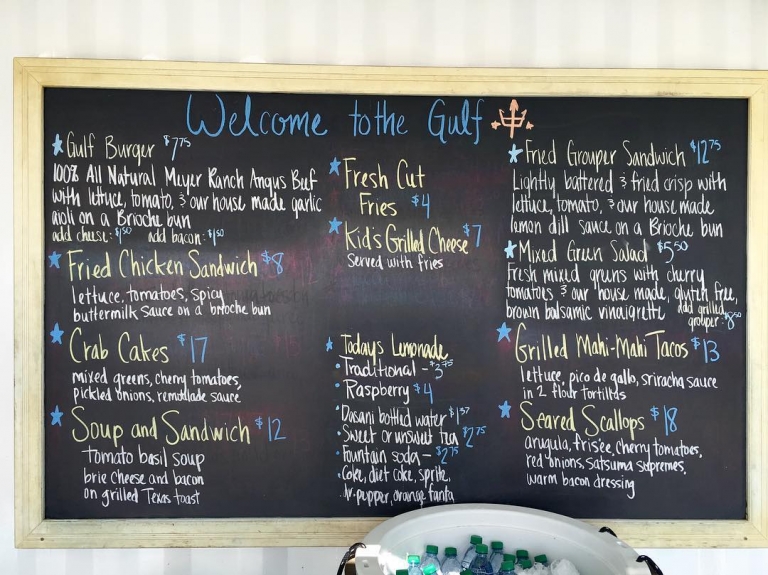 Welcome to the Gulf
Gulf Burger $7.75
100% All Natural Meyer Ranch Angus Beef
with lettuce, tomato, & our house made garlic
aioli on a Brioche bun
add cheese: $1.50 add bacon: $1.50
Fried Chicken Sandwich $8
lettuce, tomatoes, spicy
buttermilk sauce on a brioche bun
Crab Cakes $17
mixed greens, cherry tomatoes,
pickled onions, remoulade sauce
Soup and Sandwich $12
tomato basil soup
brie cheese and bacon
on grilled Texas toast
Fresh Cut
Fries $4
Kid's Grilled Cheese $7
served with fries
Todays Lemonade
Traditional - $3.75
Raspberry $4
Dasani bottled water
Sweet or unsweet tea $2.75
Fountain soda - $2.75
Coke, diet coke, sprite,
dr. pepper, orange fanta
Fried Grouper Sandwich $12.75
Lightly battered & fried crisp with
lettuce, tomato, & our house made
lemon dill sauce on a Brioche bun
Mixed Green Salad $5.50
Fresh mixed greens with cherry
tomatoes & our house made, gluten free,
brown balsamic vinaigrette add grilled
grouper: $8.50
Grilled Mahi-Mahi Tacos $13
lettuce, pico de gallo, sriracha sauce
in 2 flour tortillas
Seared Scallops $18
arugula, frisée, cherry tomatoes,
red onions, satsuma supremes,
warm bacon dressing